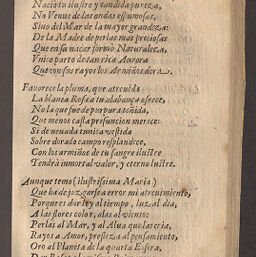 Nacio tu ilustre y candida pureza,
No Venus de las ondas espumosas,
Sino del Mar de la mayor grandeza:
De la Madre de perlas mas preciosas
Que en su nacar formò Naturaleza,
Vnico parto de tan rica Aurora
Que con sus rayos los Armiños dora.
Favorece la pluma, que atrevida
La blanca Rosa a tu alabança ofrece,
No la que fue de purpura teñida,
Que menos casta presuncion merece:
Si de neuada tunica vestida
Sobre dorado campo resplandece,
Con los armiños de tu sangre ilustre
Tendrà inmortal valor, y eterno lustre.
Aunque temo (ilustrissima Maria)
Que ha de juzgarse a error mi atreuimiento,
Porque es dar ley al tiempo, luz al dia,
A las flores color, alas al viento:
Perlas al Mar, y al Alua que las cria,
Rayos a Amor, presteza al pensamiento,
Oro al Planeta de la quarta Esfera,